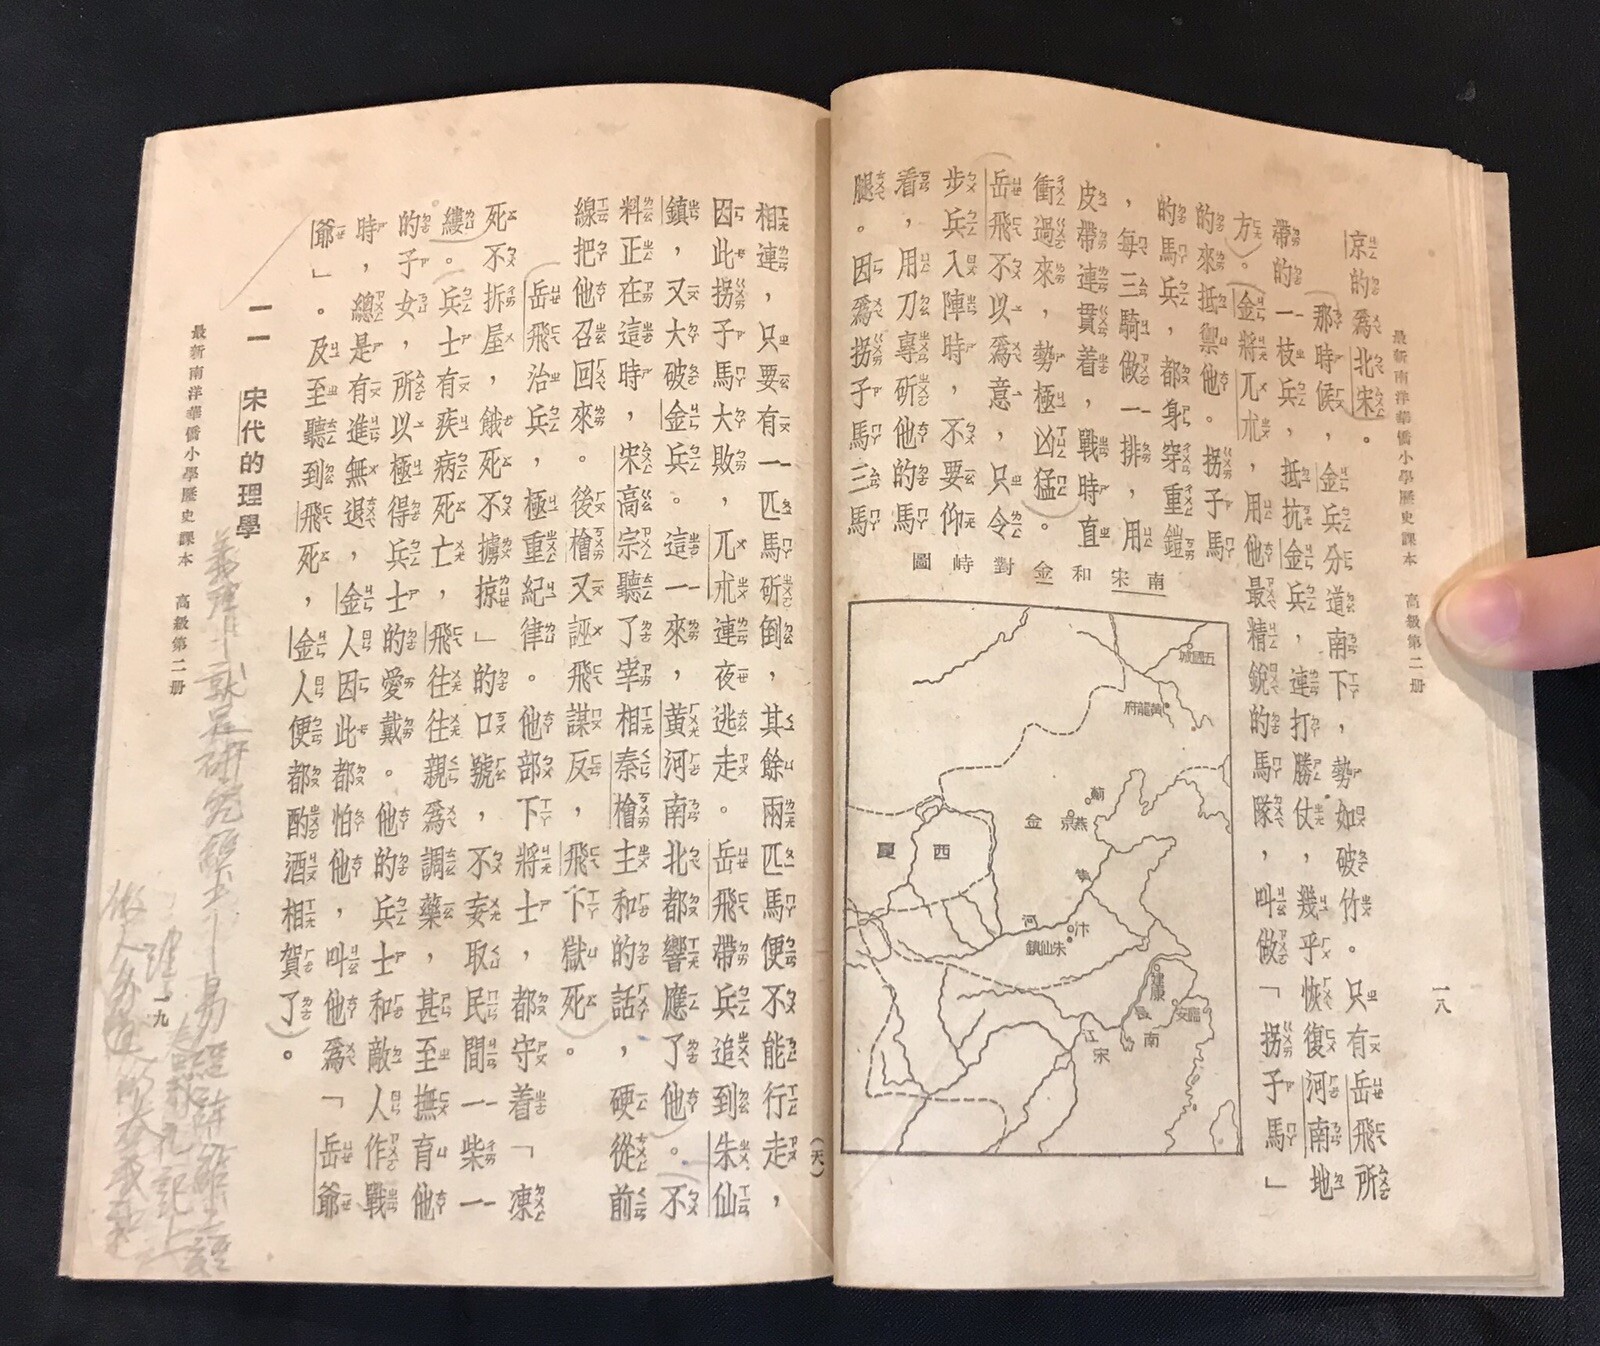 最新南洋華僑小學歷史課本　高級第二册
一八
京的爲北宋。
那時候，金兵分道南下，勢如破竹。只有岳飛所
帶的一枝兵，抵抗金兵，連打勝仗，幾乎恢復河南地
方。金將兀朮，用他最精銳的馬隊，叫做「拐子馬」
的來抵禦他。拐子馬
的馬兵，都身穿重鎧
，每三騎做一排，用
皮帶連貫着，戰時直
衝過來，勢極凶猛。
岳飛不以爲意，只令
步兵入陣時，不要仰
看，用刀專斫他的馬
腿。因爲拐子馬三馬
圖峙對金和宋南
五國城
黃龍府
薊
燕京
金
西夏
黃
河
汴
朱仙鎮
建康
臨安
長
江
南
宋
（天）
相連，只要有一匹馬斫倒，其餘兩匹馬便不能行走，
因此拐子馬大敗，兀朮連夜逃走。岳飛帶兵追到朱仙
鎮，又大破金兵。這一來，黃河南北都響應了他。不
料正在這時，宋高宗聽了宰相秦檜主和的話，硬從前
線把他召回來。後檜又誣飛謀反，飛下獄死。
岳飛治兵，極重紀律。他部下將士，都守着「凍
死不拆屋，餓死不擄掠」的口號，不妄取民間一柴一
縷。兵士有疾病死亡，飛往往親爲調藥，甚至撫育他
的子女，所以極得兵士的愛戴。他的兵士和敵人作戰
時，總是有進無退，金人因此都怕他，叫他爲「岳爺
爺」。及至聽到飛死，金人便都酌酒相賀了。
一一　宋代的理學
最新南洋華僑小學歷史課本　高級第二册
一九
義理
就是研究
易經詩經
禮記